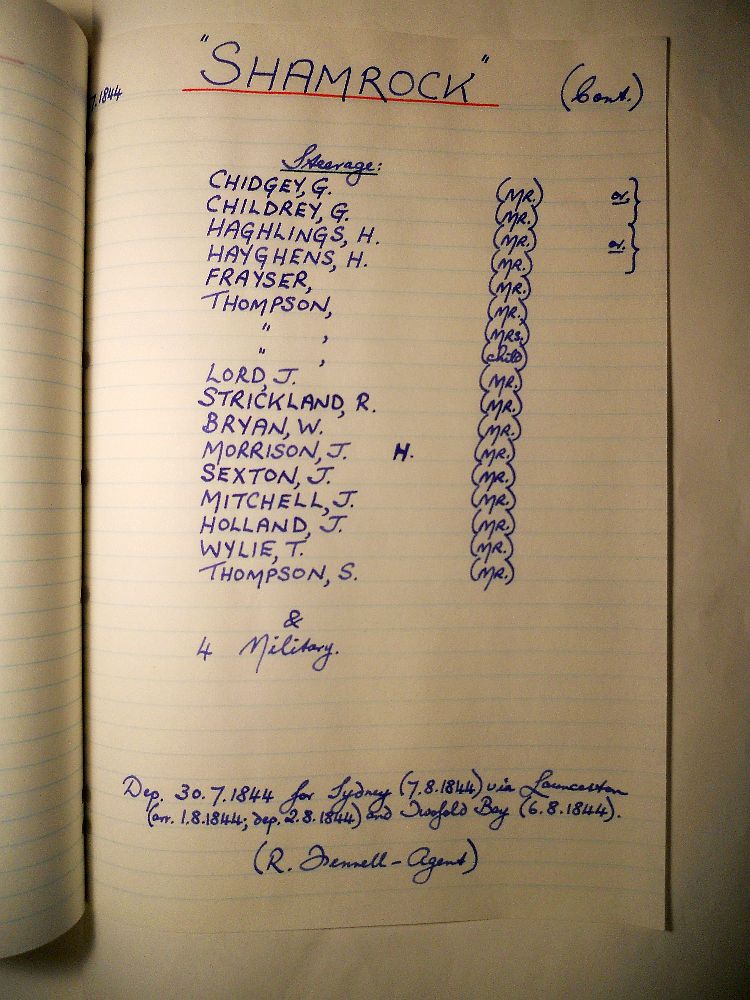 7.1844
"SHAMROCK" (Cont.)
Steerage:
CHIDGEY, G. (MR.) or.
CHILDREY, G. (MR.)
HAGHLINGS, H. (MR.) or.
HAYGHENS, H. (MR.)
FRAYSER, (MR.)
THOMPSON, (MR.)
" , (MRS.)
" , (child)
LORD, J. (MR.)
STRICKLAND, R. (MR.)
BRYAN, W. (MR.)
MORRISON, J. H. (MR.)
SEXTON, J. (MR.)
MITCHELL, J. (MR.)
HOLLAND, J. (MR.)
WYLIE, T. (MR.)
THOMPSON, S. (MR.)
&
4 Military.
Dep. 30.7.1844 for Sydney (7.8.1844) via Launceston
(arr. 1.8.1844; dep. 2.8.1844) and Twofold Bay (6.8.1844).
(R. Fennell - Agent)